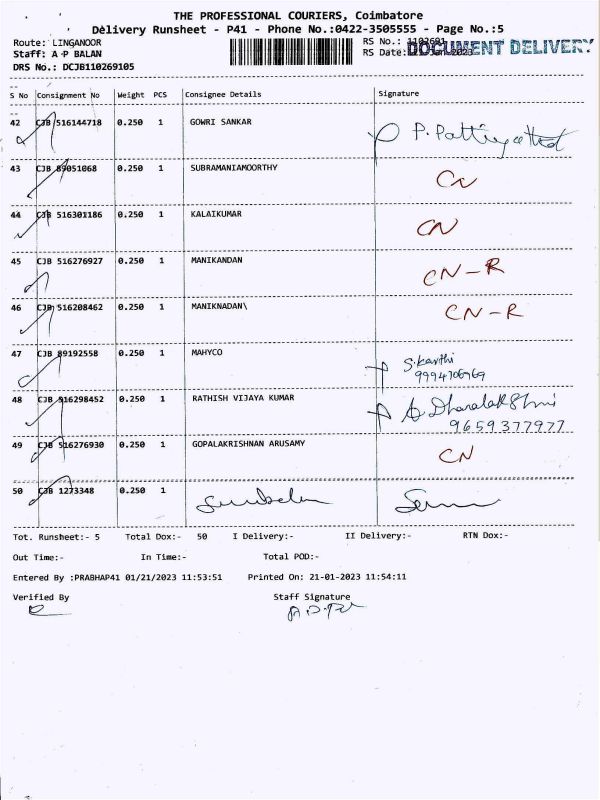 THE PROFESSIONAL COURIERS, Coimbatore
Delivery Runsheet - P41 - Phone No.:0422-3505555 - Page No.:5
Route: LINGANOOR RS No.:
DOCUMENT DELIVERY
Staff: A P BALAN RS Date: 21 Jan 2023
DRS No.: DCJB110269105
S No Consignment No Weight PCS Consignee Details Signature
42 CJB 516144718 0.250 1 GOWRI SANKAR
43 CJB 89051068 0.250 1 SUBRAMANIAMOORTHY CN
44 CJB 516301186 0.250 1 KALAIKUMAR CN
45 CJB 516276927 0.250 1 MANIKANDAN CN-R
46 CJB 516208462 0.250 1 MANIKNADAN\ CN-R
47 CJB 89192558 0.250 1 MAHYCO S.karthi
9994706969
48 CJB 516298452 0.250 1 RATHISH VIJAYA KUMAR
9659377977
49 CJB 516276930 0.250 1 GOPALAKRISHNAN ARUSAMY CN
50 CJB 1273348 0.250 1
Tot. Runsheet:- 5 Total Dox:- 50 I Delivery:- II Delivery:- RTN Dox:-
Out Time:- In Time:- Total POD:-
Entered By :PRABHAP41 01/21/2023 11:53:51 Printed On: 21-01-2023 11:54:11
Verified By Staff Signature